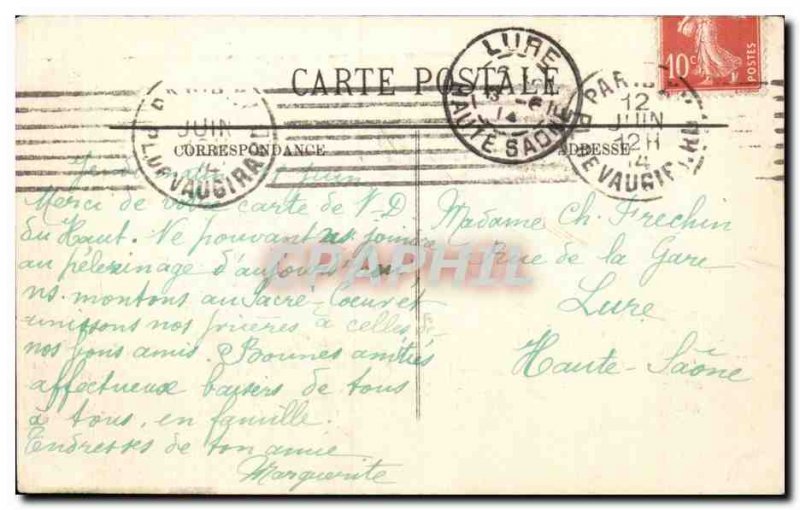 CARTE POSTALE
CORRESPONDANCE
ADRESSE
10c
POSTES
LURE
13 -6
14
HAUTE SAONE
PARIS
12
JUIN
12H
14
R. DE VAUGIRARD
JUIN
juin
Merci de votre carte de N-D
du Haut. Ne pouvant ns joindre
au pèlerinage d'aujourd'hui
ns. montons au Sacré-Coeur et
unissons nos prières à celles de
nos bons amis. Bonnes amitiés
affectueux baisers de tous
à tous, en famille.
Tendresses de ton amie
Marguerite
Madame Ch. Frechin
rue de la Gare
Lure
Haute-Saône
CPAPHIL